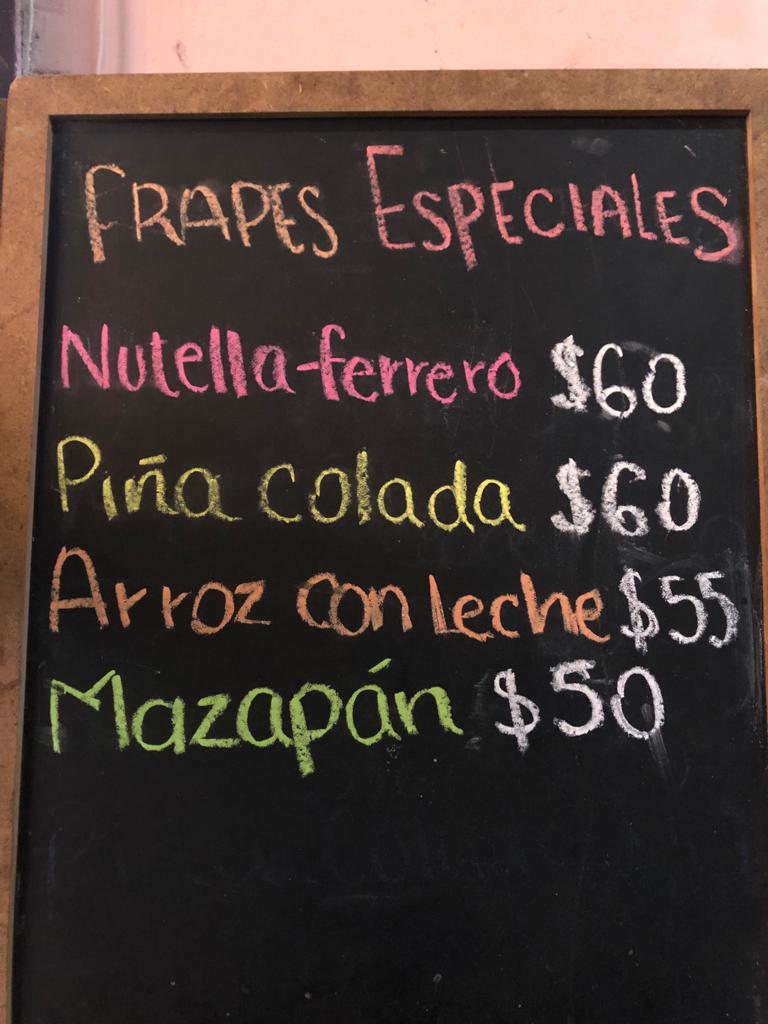 FRAPES ESPECIALES
Nutella-ferrero $60
Piña colada $60
Arroz con Leche $55
Mazapán $50